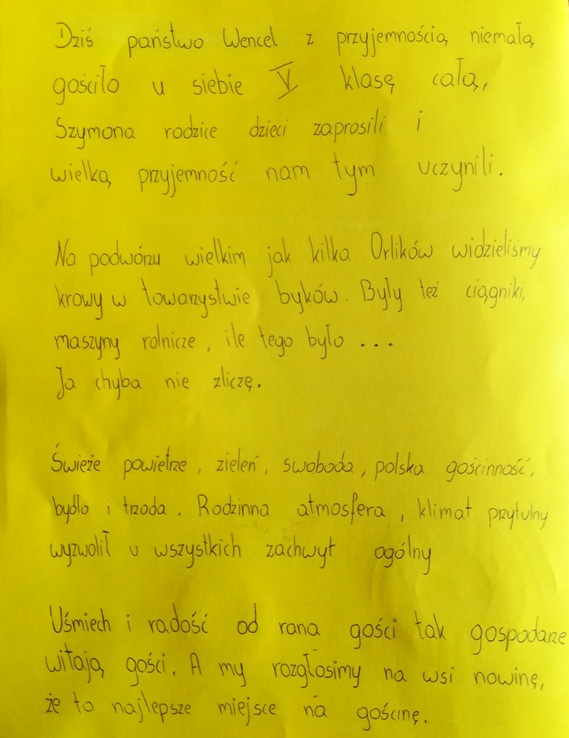 Dziś państwo Wencel z przyjemnością niemałą
gościło u siebie V klasę całą,
Szymona rodzice dzieci zaprosili i
wielką przyjemność nam tym uczynili.
Na podwórzu wielkim jak kilka Orlików widzieliśmy
krowy w towarzystwie byków. Były też ciągniki,
maszyny rolnicze, ile tego było ...
Ja chyba nie zliczę.
Świeże powietrze, zieleń, swoboda, polska gościnność,
bydło i trzoda. Rodzinna atmosfera, klimat przytulny
wyzwolił u wszystkich zachwyt ogólny
Uśmiech i radość od rana gości tak gospodarze
witają gości. A my rozgłosimy na wsi nowinę,
że to najlepsze miejsce na gościnę.